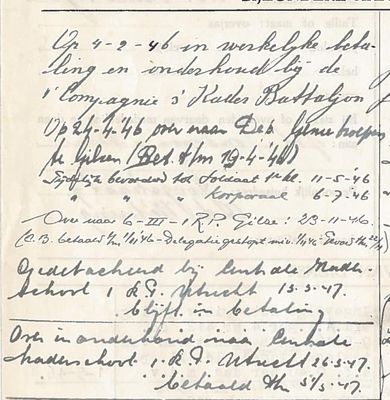 Op 4-2-46 in werkelijke beta-
ling en onderhoud bij de
1e Compagnie 3e Kader Battaljon
Op 24-4-46 over naar Dep. Genie troepen
te Gilzen (Bet. t/m 19-4-46)
Tijdelijk bevorderd tot Soldaat 1e kl. 11-5-46
" " " Korporaal 6-7-46
Over naar 6-III-1 R.P. Gilze: 23-11-46.
betaald t/m Delegatie gestopt
Gedetacheerd bij Centrale Kader-
school 1 R.G. Utrecht 13-3-47.
blijft in betaling
Over in onderhoud naar Centrale
Kaderschool 1 R.G. Utrecht 26-3-47.
betaald t/m